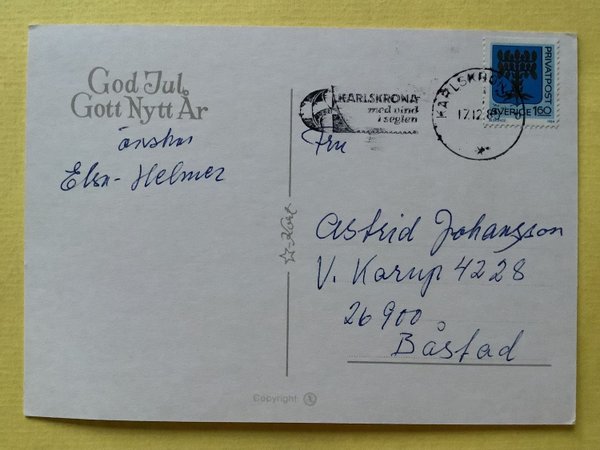 God Jul,
Gott Nytt År
önskar
Elsa-Helmer
KARLSKRONA
med vind
i seglen
KARLSKRONA
17.12.8
PRIVATPOST
SVERIGE 160
Fru
Astrid Johansson
V. Karup 4228
26900
Båstad
Copyright